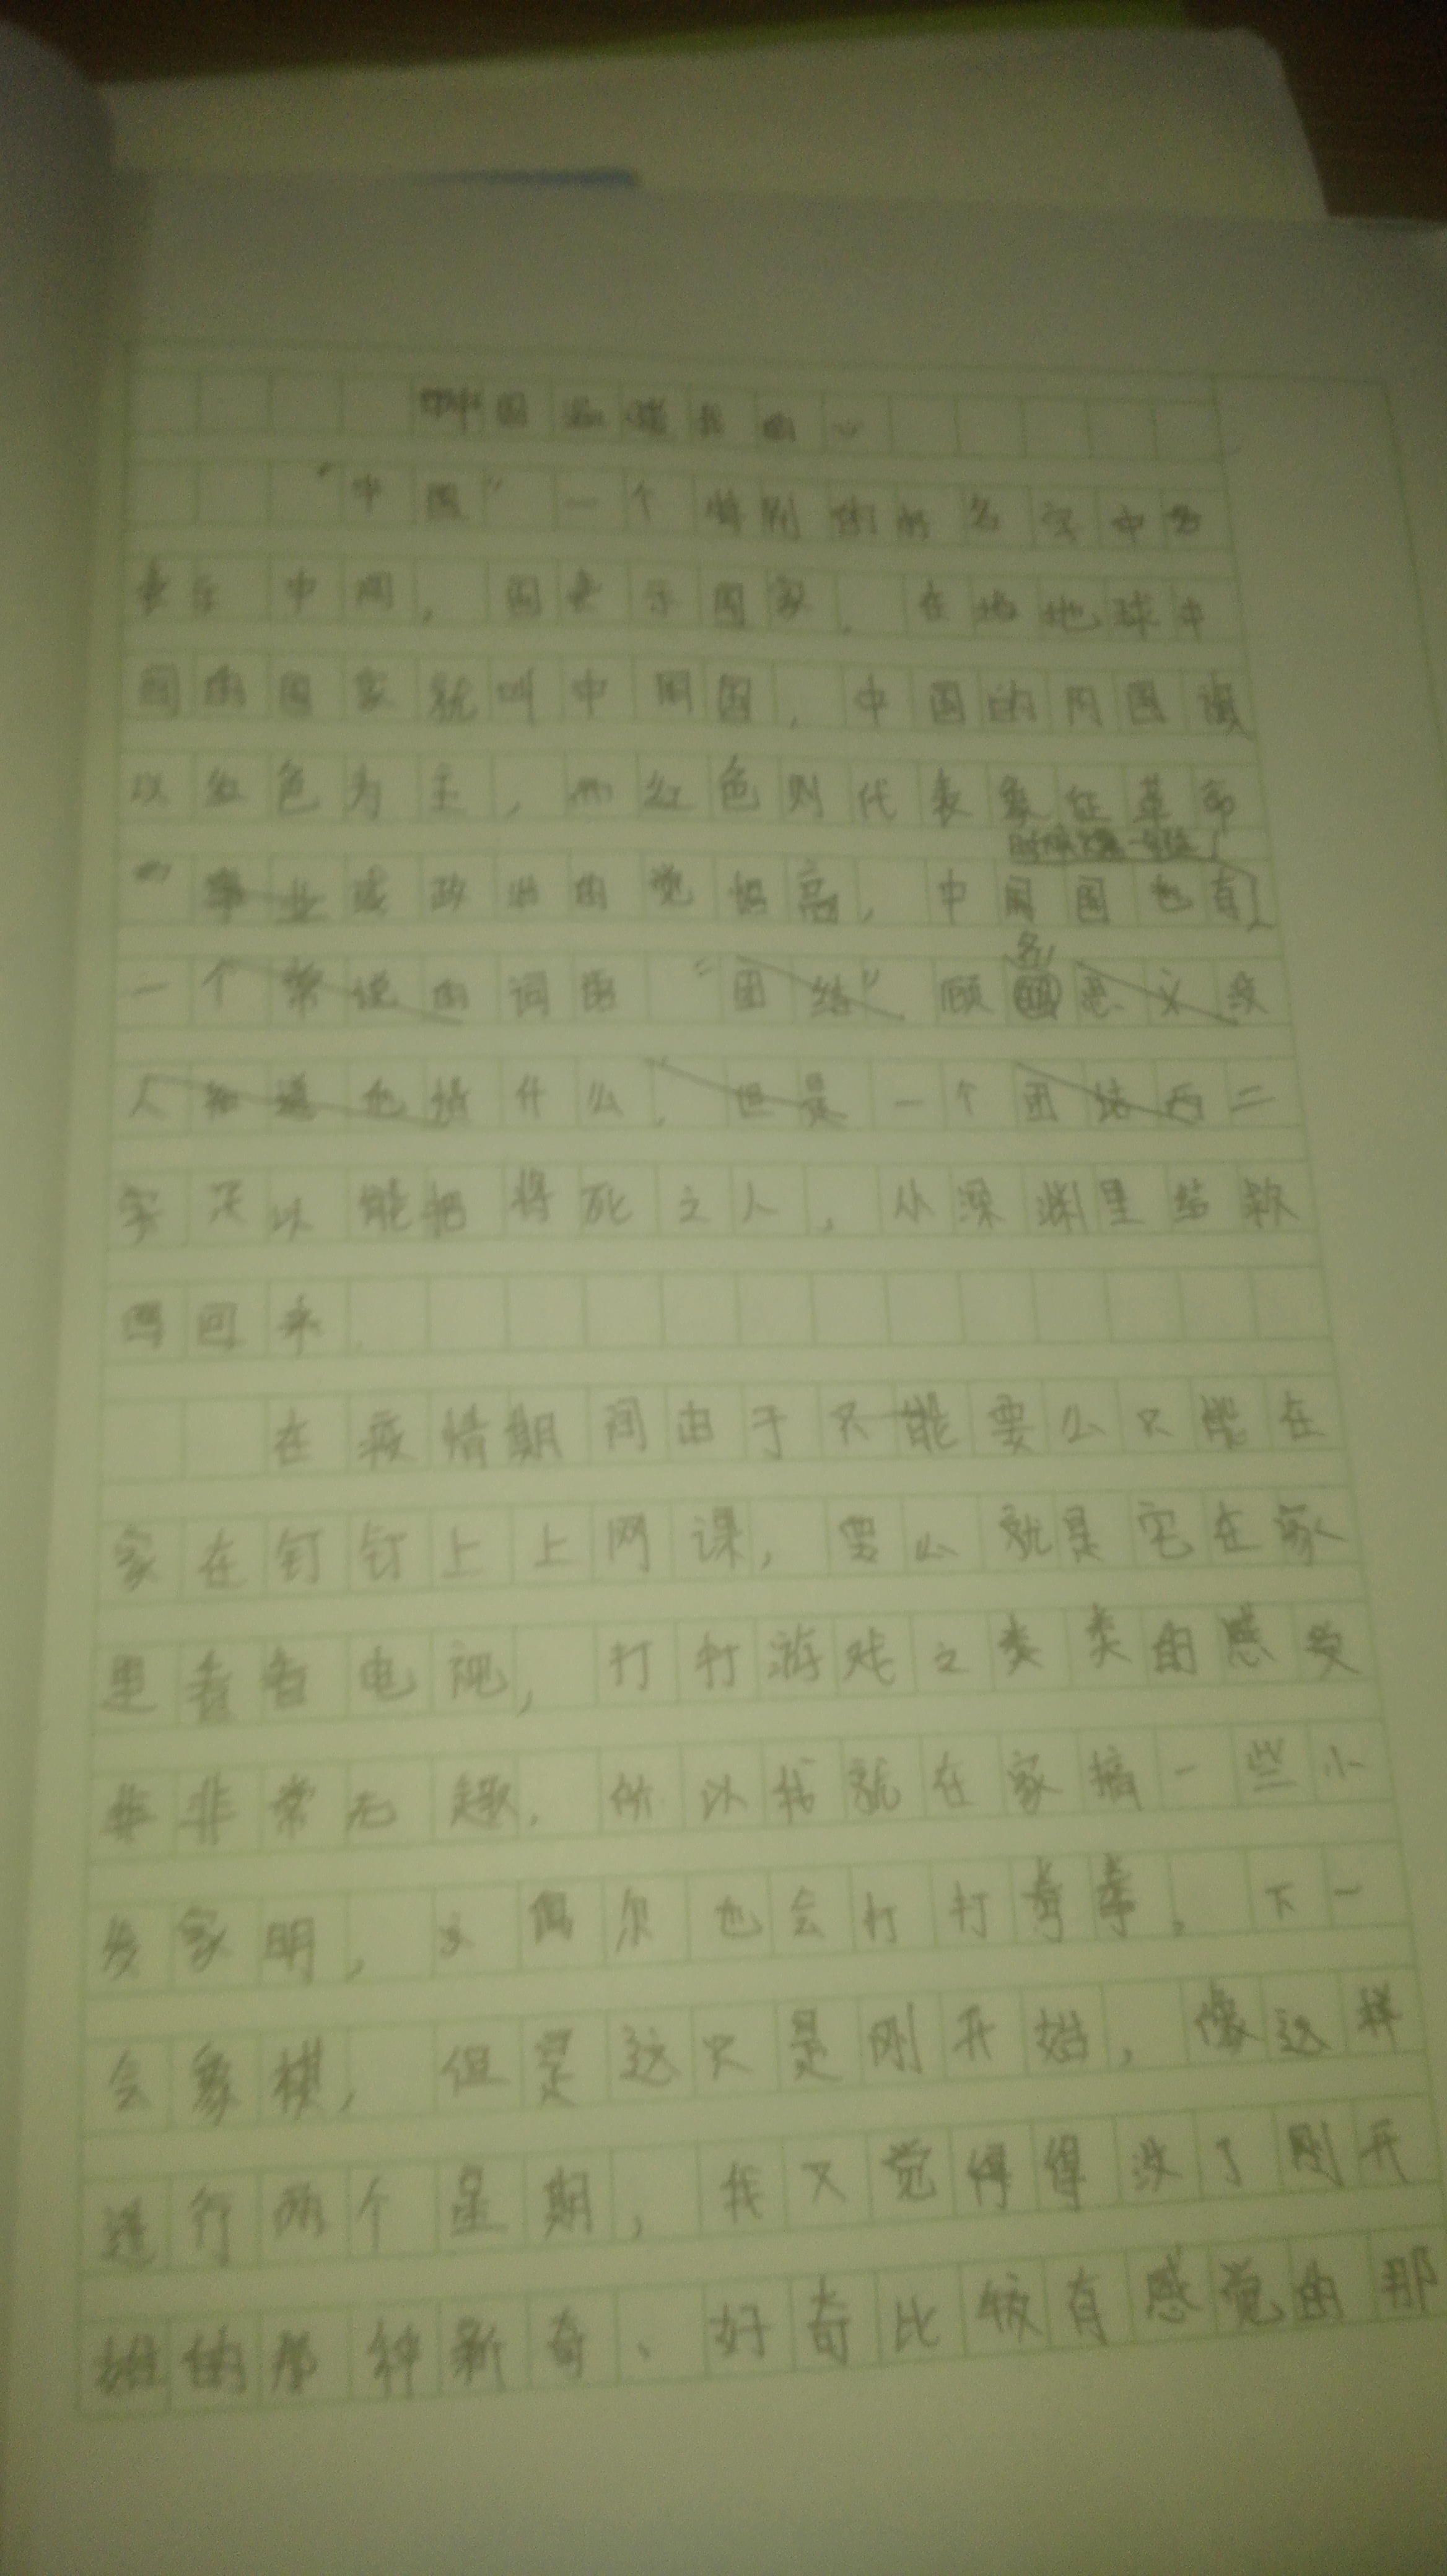 中国温暖我的心
“中国”一个特别的名字中
表示中间，国表示国家。在地地球中
间的国家就叫中国国，中国的国旗
以红色为主，而红色则代表象征革命
事业政治的觉悟高，中国国也有
一个常说的词语“团结”顾名思义
人知道什么，但是一个团结
实不以能把将死之人，从深渊里
回来
在疫情期间由于只能要么只能在
家在钉钉上上网课，要么就是宅在家
里看看电视，打打游戏之类类的感受
非非常无趣，所以我就在家搞一些小
发家明，偶尔也会打打拳拳，下一
会象棋，但是这只是刚开始，像这样
进行两个星期，我又觉得得没了刚开
始的那种新奇、好奇比较有感觉的那